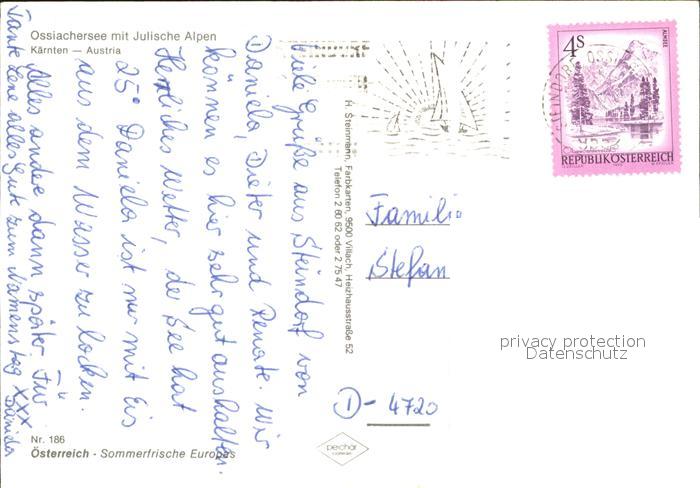 Ossiachersee mit Julische Alpen
Kärnten — Austria
Viele Grüße aus Steindorf von
Daniela, Dieter und Renate. Wir
können es hier sehr gut aushalten.
Herrliches Wetter, der See hat
25° Daniela ist nur mit Eis
aus dem Wasser zu locken.
Alles andre dann später. Für
Tante Lene alles Gute zum Namenstag XXX
Daniela
H. Steinmann, Farbkarten, 9500 Villach, Heizhausstraße 52
Telefon 2 80 62 oder 2 75 47
4S
ALMSEE
REPUBLIK ÖSTERREICH
Familie
Stefan
privacy protection
Datenschutz
D - 4720
Nr. 186
Österreich - Sommerfrische Europas